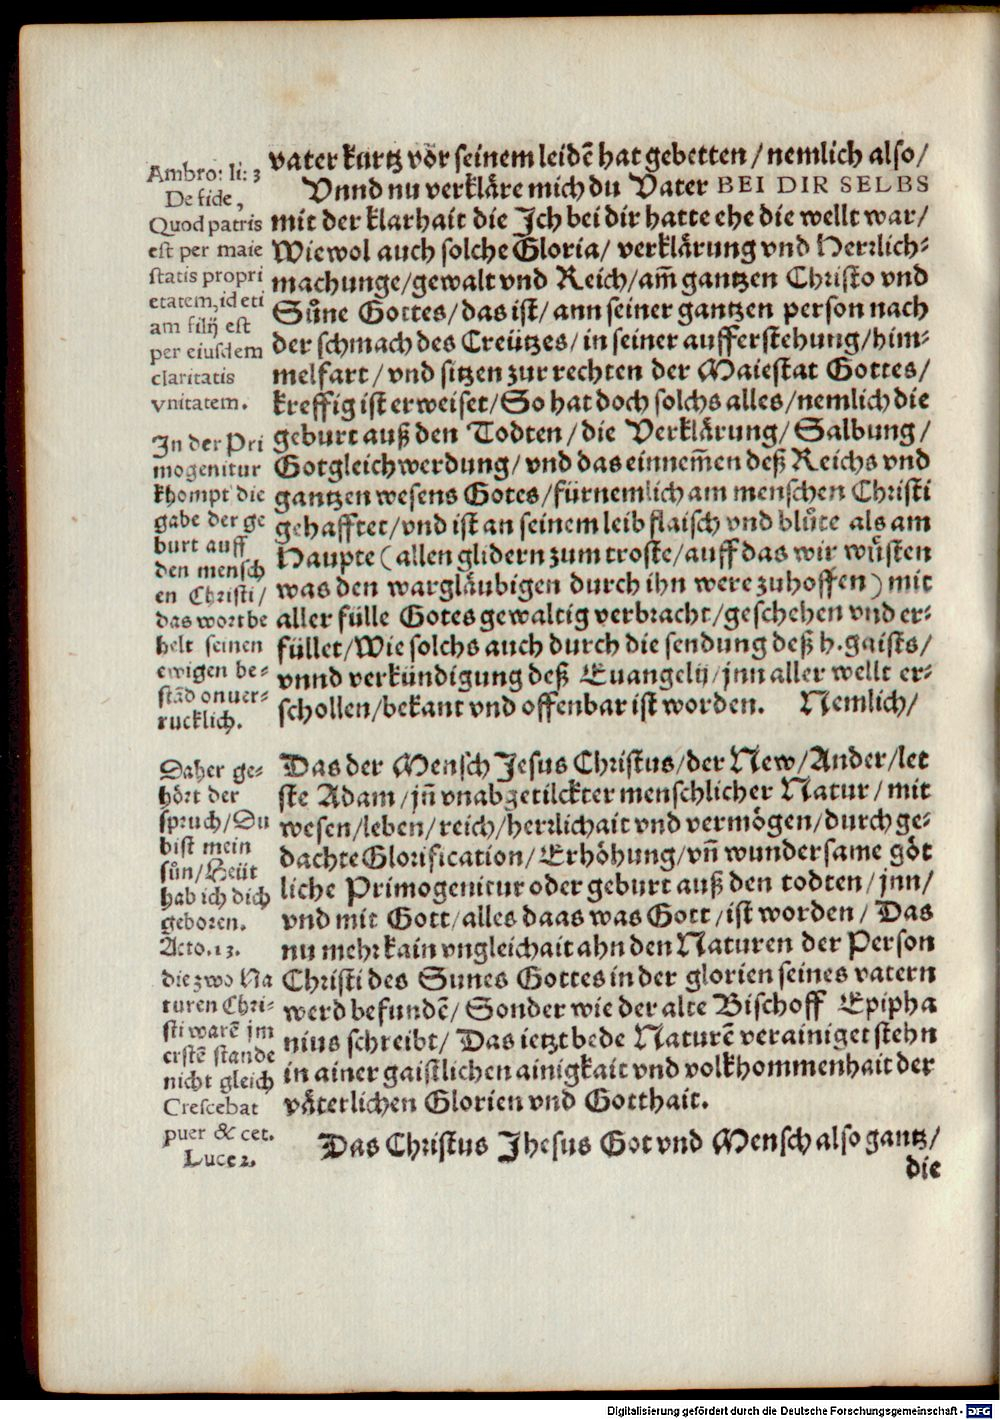 Ambro: li: 3
De fide,
Quod patris
est per maie
statis propri
etatem, id eti
am filij est
per eiusdem
claritatis
vnitatem.
In der Pri
mogenitur
khompt die
gabe der ge
burt auff
den mensch
en Christi/
das wort be
helt seinen
ewigen be-
stãd onuer-
rucklich.
Daher ge-
hört der
spruch/Du
bist mein
sůn/Heüt
hab ich dich
geboren.
Acto.13.
die zwo Na
turen Chri-
sti warẽ jm
erstẽ stande
nicht gleich
Crescebat
puer & cet.
Luce 2.
vater kurtz vor seinem leidẽ hat gebetten/nemlich also/
Vnnd nu verkläre mich du Vater BEI DIR SELBS
mit der klarhait die Ich bei dir hatte ehe die wellt war/
Wiewol auch solche Gloria/ verklärung vnd Herrlich-
machunge/gewalt vnd Reich/am̃ gantzen Christo vnd
Sůne Gottes/das ist/ann seiner gantzen person nach
der schmach des Creützes/in seiner aufferstehung/him-
melfart/vnd sitzen zur rechten der Maiestat Gottes/
kreffig ist erweiset/So hat doch solchs alles/nemlich die
geburt auß den Todten/die Verklärung/Salbung/
Gotgleichwerdung/vnd das einnem̃en deß Reichs vnd
gantzen wesens Gotes/fürnemlich am menschen Christi
gehafftet/vnd ist an seinem leib flaisch vnd blůte als am
Haupte (allen glidern zum troste/auff das wir wüsten
was den wargläubigen durch ihn were zuhoffen) mit
aller fülle Gotes gewaltig verbracht/geschehen vnd er-
füllet/Wie solchs auch durch die sendung deß h.gaists/
vnnd verkündigung deß Euangelij/jnn aller wellt er-
schollen/bekant vnd offenbar ist worden. Nemlich/
Das der Mensch Jesus Christus/der New/Ander/let
ste Adam/jñ vnabgetilckter menschlicher Natur/mit
wesen/leben/reich/herrlichait vnd vermögen/durch ge-
dachte Glorification/Erhöhung/vñ wundersame göt
liche Primogenitur oder geburt auß den todten/jnn/
vnd mit Gott/alles daas was Gott/ist worden/ Das
nu mehr kain vngleichait ahn den Naturen der Person
Christi des Sunes Gottes in der glorien seines vatern
werd befundẽ/ Sonder wie der alte Bischoff Epipha
nius schreibt/ Das ietzt bede Naturẽ verainiget stehn
in ainer gaistlichen ainigkait vnd volkhommenhait der
väterlichen Glorien vnd Gotthait.
Das Christus Jhesus Got vnd Mensch also gantz/
die
Digitalisierung gefördert durch die Deutsche Forschungsgemeinschaft - DFG